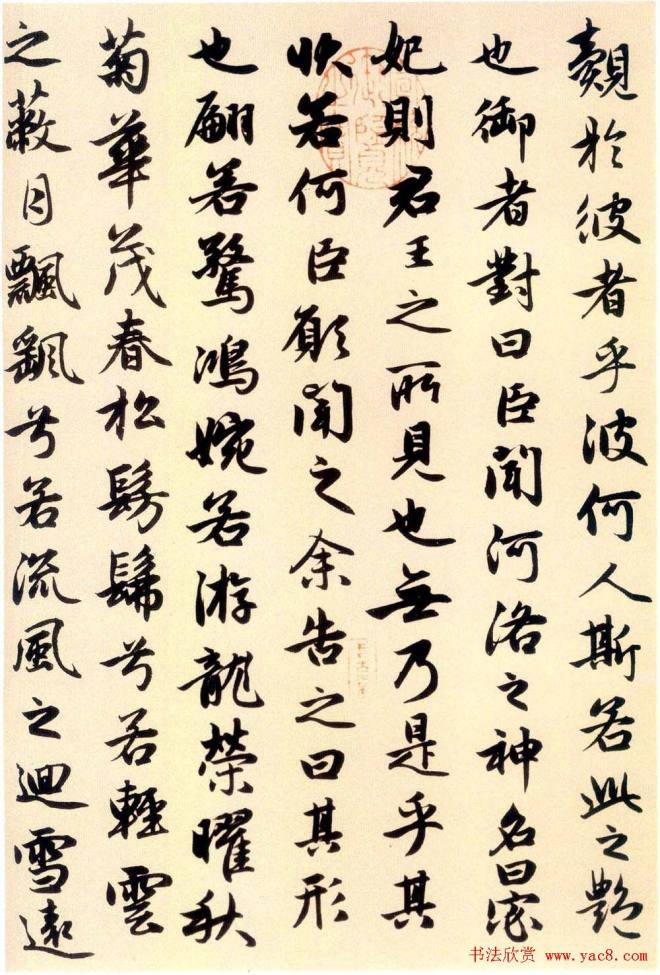 覿於彼者乎波何人斯若此之艷
也御者對曰臣聞河洛之神名曰宓
妃則君王之所見也無乃是乎其
狀若何臣願聞之余告之曰其形
也翩若驚鴻婉若游龍榮曜秋
菊華茂春松髣髴兮若輕雲
之蔽月飄颻兮若流風之迴雪遠
书法欣赏 www.yac8.com